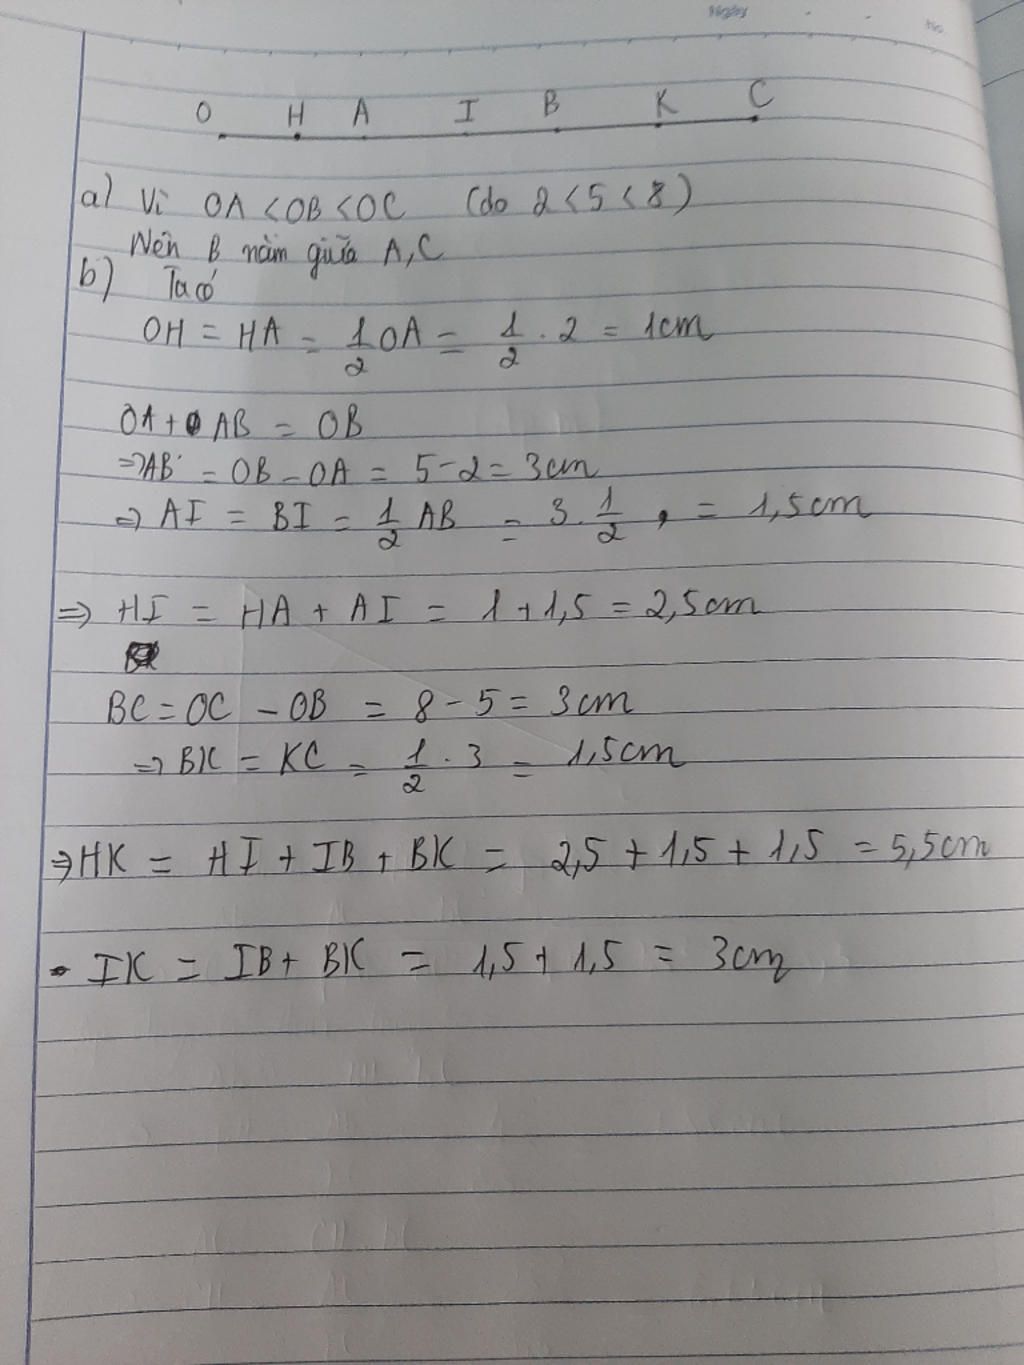 Ngày
No.
O H A I B K C
a) Vì OA < OB < OC (do 2 < 5 < 8)
Nên B nằm giữa A, C
b) Ta có
OH = HA = 1/2 OA = 1/2 . 2 = 1cm
OA + AB = OB
=> AB = OB - OA = 5 - 2 = 3cm
=> AI = BI = 1/2 AB = 3 . 1/2 = 1,5cm
=> HI = HA + AI = 1 + 1,5 = 2,5cm
BC = OC - OB = 8 - 5 = 3cm
=> BK = KC = 1/2 . 3 = 1,5cm
=> HK = HI + IB + BK = 2,5 + 1,5 + 1,5 = 5,5cm
• IK = IB + BK = 1,5 + 1,5 = 3cm